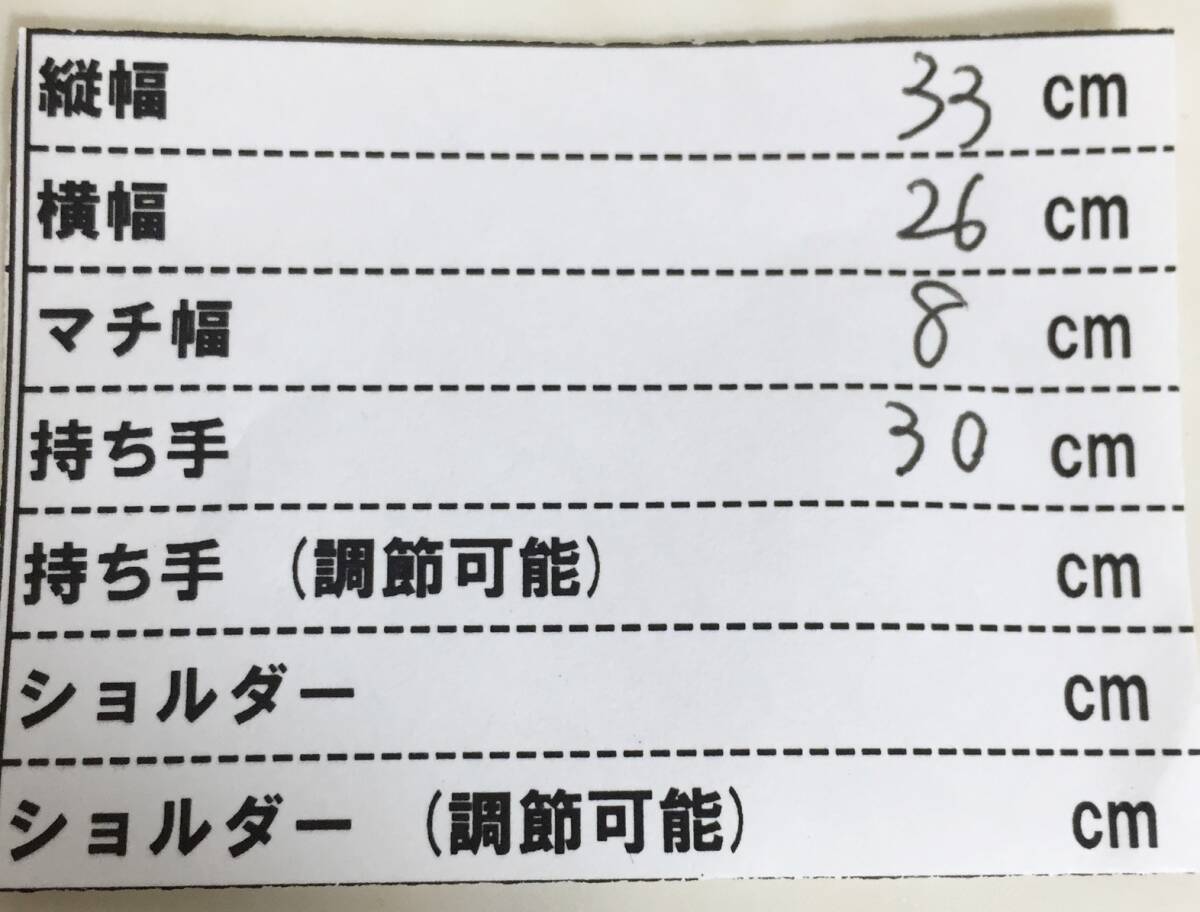 縦幅 33 cm
横幅 26 cm
マチ幅 8 cm
持ち手 30 cm
持ち手 (調節可能) cm
ショルダー cm
ショルダー (調節可能) cm